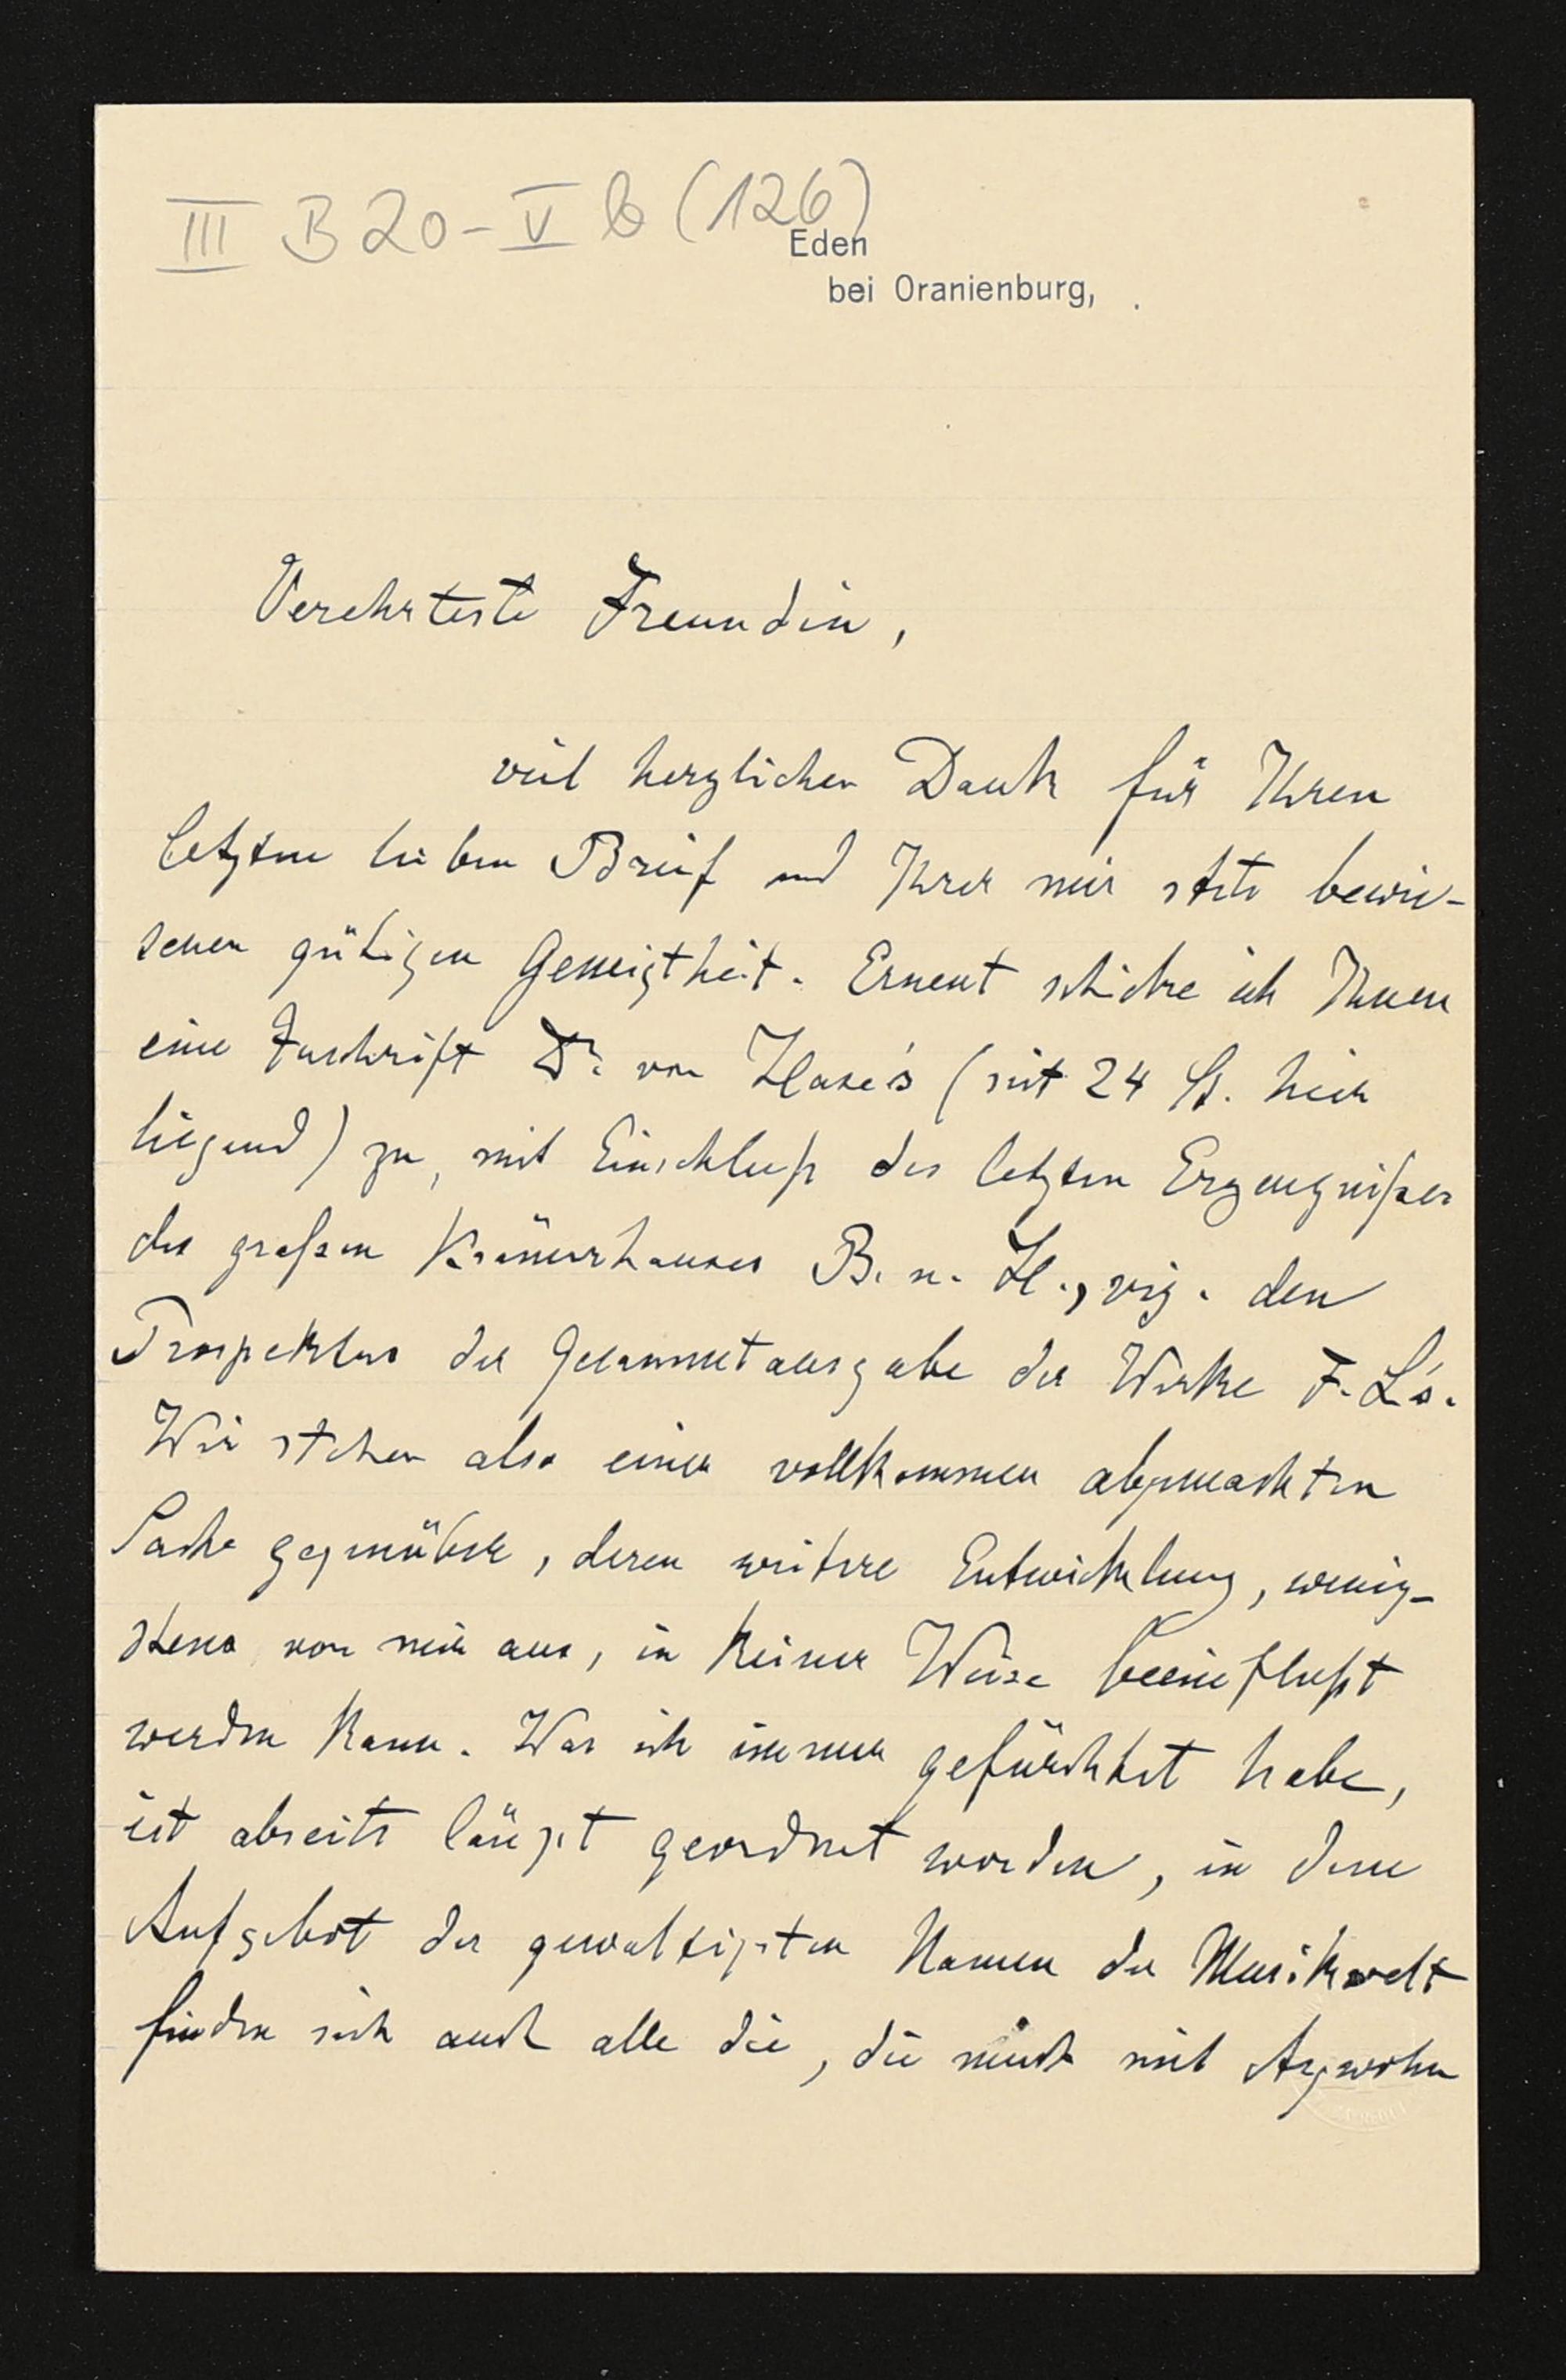 III B 20 - V b (126)
Eden
bei Oranienburg,
Verehrteste Freundin,
viel herzlichen Dank für Ihren
letzten lieben Brief und Ihrer mir stets bewie-
senen gütigen Geneigtheit. Erneut schicke ich Ihnen
eine Zuschrift Dr. von Hase's (seit 24 St. hier
liegend) zu, mit Einschluß des letzten Erzeugnißes
des großen Krämerhauses B. u. H., viz. den
Prospektus der Gesammtausgabe der Werke F. L's.
Wir stehen also einer vollkommen abgemachten
Sache gegenüber, deren weitere Entwicklung, wenig-
stens von mir aus, in keiner Weise beeinflußt
werden kann. Was ich immer gefürchtet habe,
ist abseits längst geordnet worden, in dem
Aufgebot der gewaltigsten Namen der Musikwelt
finden sich auch alle die, die mich mit Argwohn